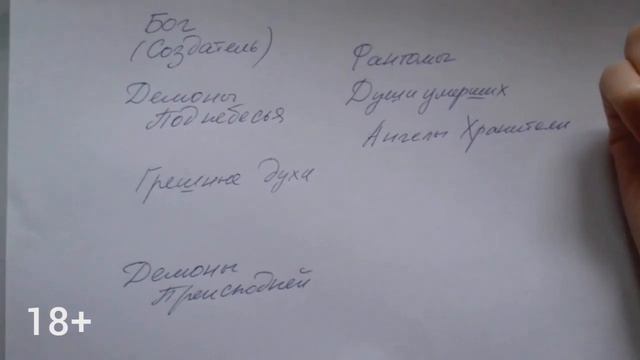 Бог
(Создатель)
Демоны
Поднебесья
Грешные духи
Демоны
Преисподней
Фантомы
Души умерших
Ангелы Хранители
18+